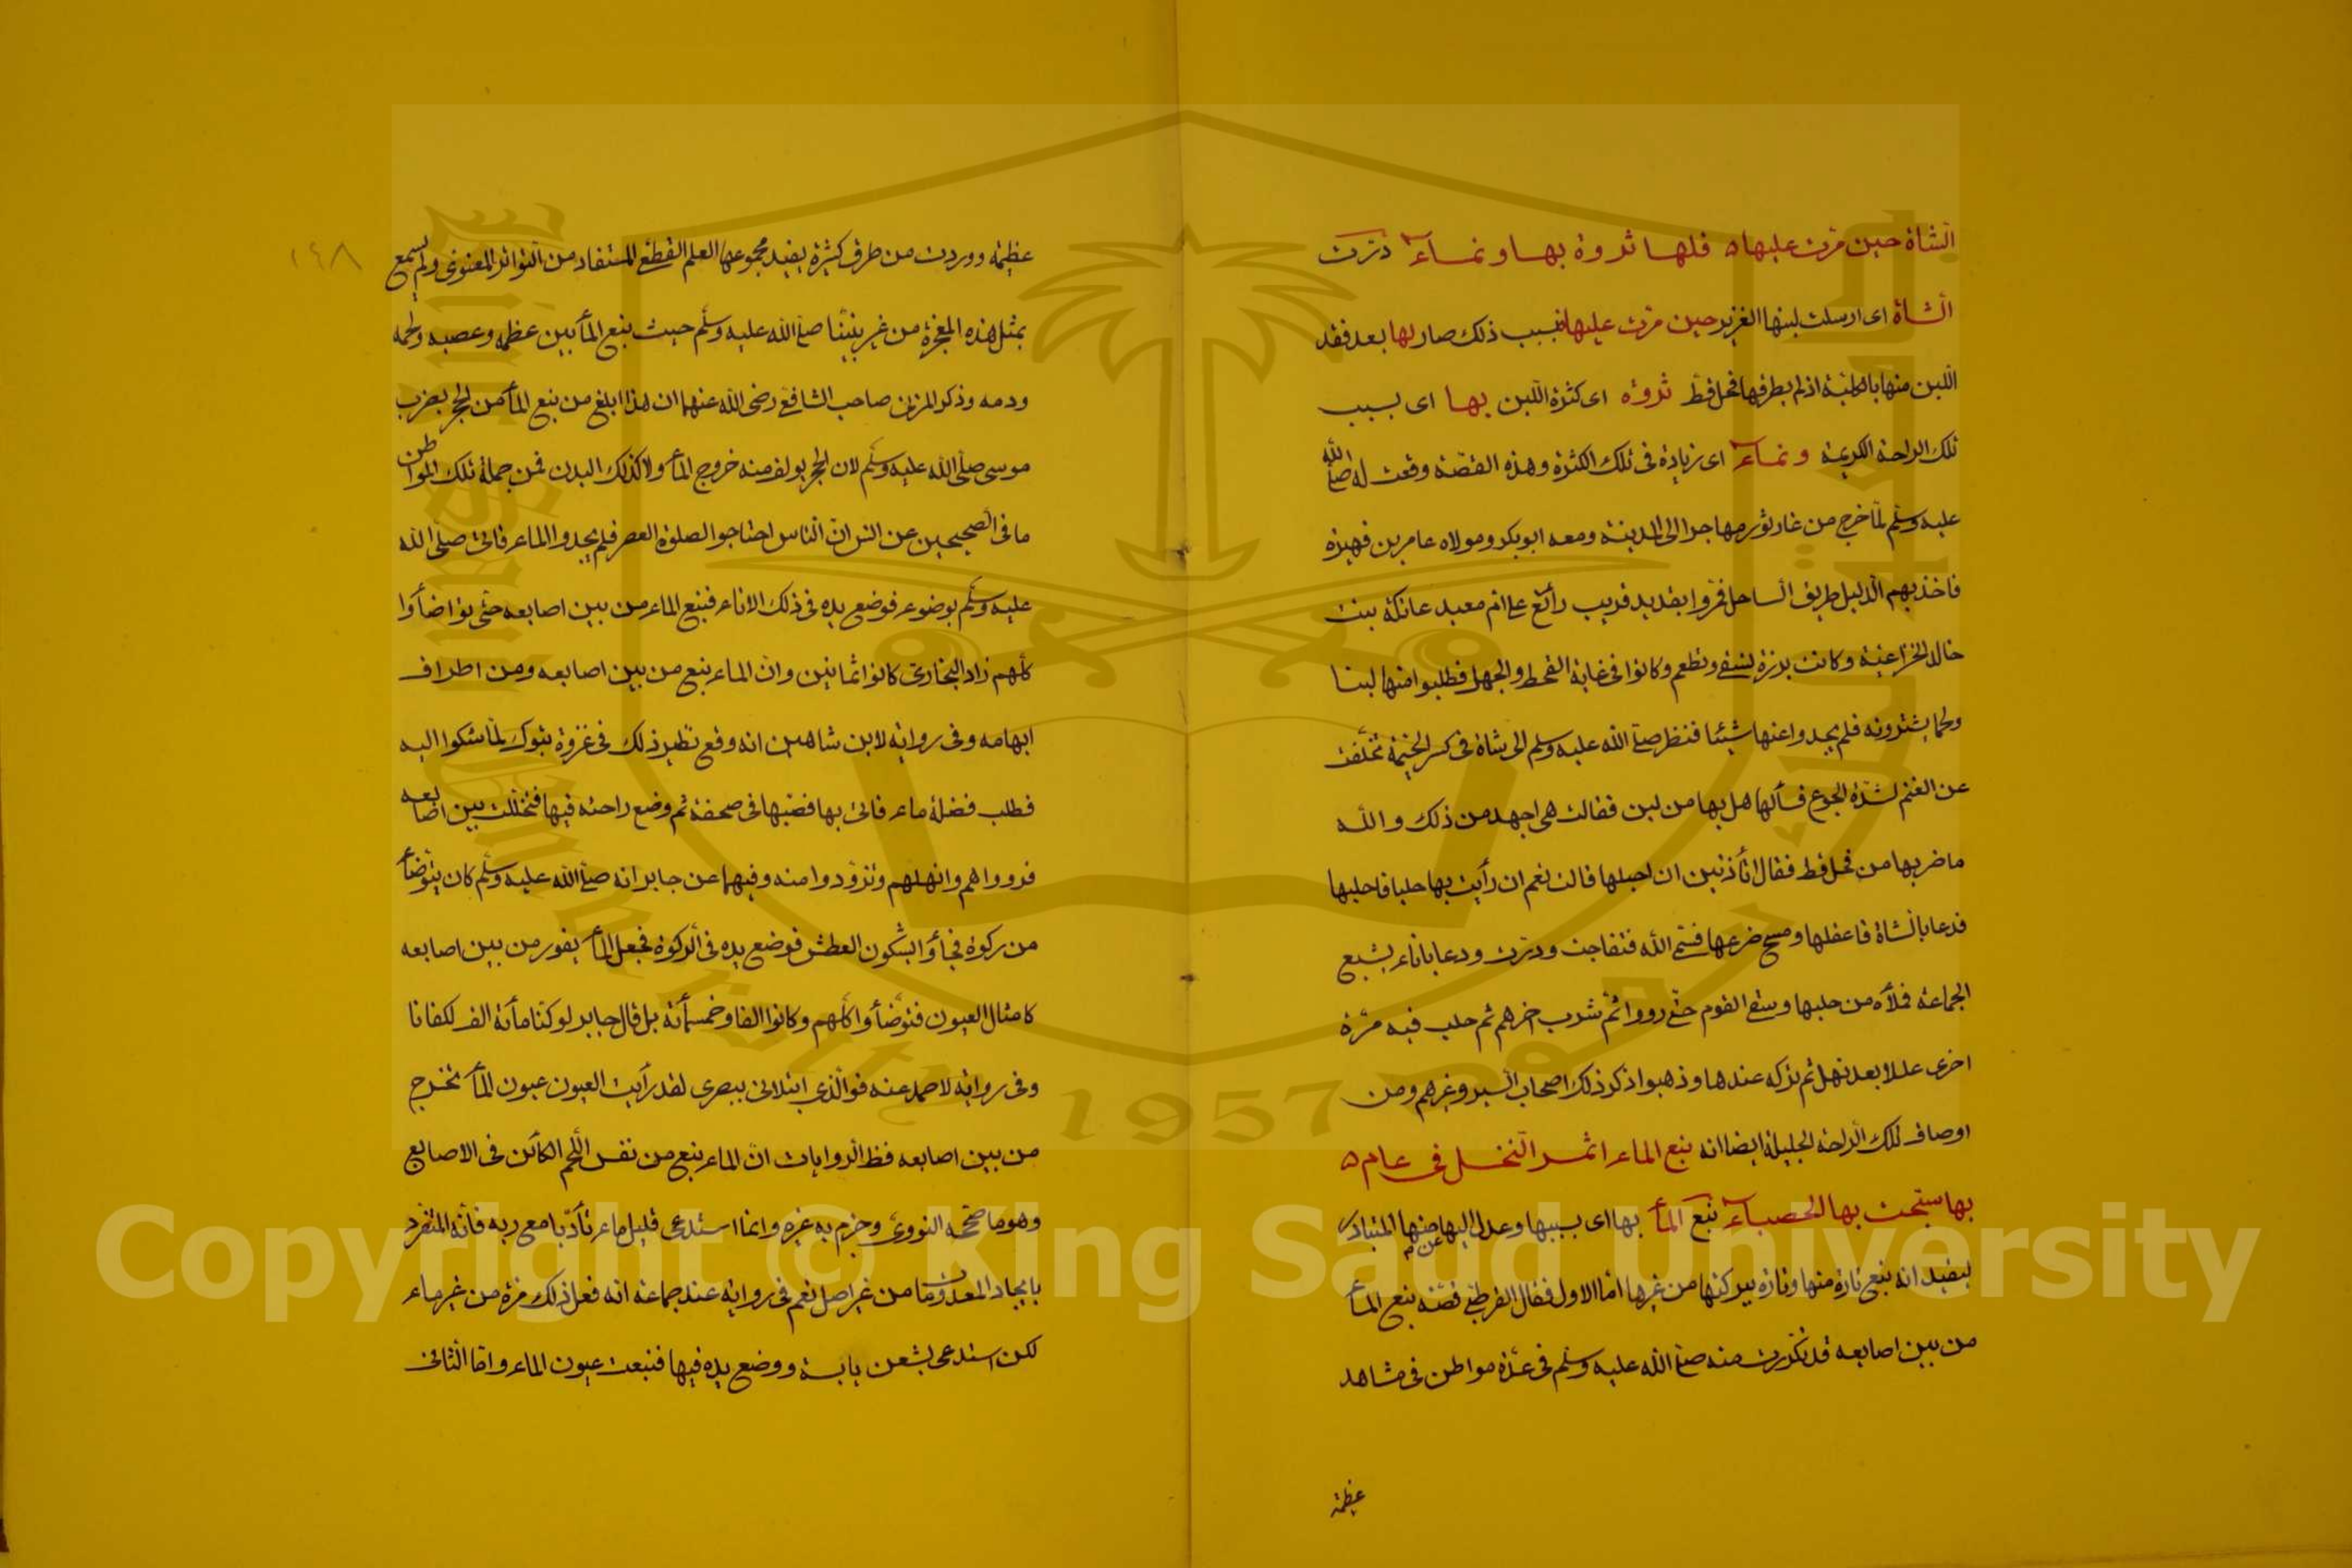 الشاة حين مرت عليها ه فلها ثروة بها ونماء درت
الشاة اى ارسلت لبنها الغزير حين مرت عليها فبسبب ذلك صار لها بعد فقد
اللبن منها بالكلية اذ لم يطرقها فحل قط ثروة اى كثرة اللبن بها اى بسبب
تلك الراحة الكريمة ونماء اى زيادة فى تلك الكثرة وهذه القصة وقعت له صلى الله
عليه وسلم لما خرج من غار ثور مهاجرا الى المدينة ومعه ابو بكر ومولاه عامر بن فهيرة
فاخذ بهم الدليل طريق الساحل فمروا بقديد قريب رائغ على ام معبد عاتكة بنت
خالد الخزاعية وكانت برزة تسقى وتطعم وكانوا فى غاية القحط والجهد فطلبوا منها لبنا
ولحما يشترونه فلم يجدوا عنها شيئا فنظر صلى الله عليه وسلم الى شاة فى كسر الخيمة تخلفت
عن الغنم لشدة الجوع فسألها هل بها من لبن فقالت هى اجهد من ذلك والله
ما ضربها من فحل قط فقال أتأذنين ان احلبها قالت نعم ان رأيت بها حلبا فاحلبها
فدعا بالشاة فاعقلها ومسح ضرعها فسمى الله فتفاجت ودرت ودعا باناء يشبع
الجماعة فملأه من حلبها وسقى القوم حتى رووا ثم شرب اخرهم ثم حلب فيه مرة
اخرى عللا بعد نهل ثم تركه عندها وذهبوا ذكر ذلك اصحاب السير وغيرهم ومن
اوصاف تلك الراحة الجليلة ايضا انه نبع الماء اثمر النخل فى عام ه
بها سبحت بها الحصباء نبع الماء بها اى بسببها وعدل اليها عن منها المتبادر
ليفيد انه نبع تارة منها وتارة ببركتها من غيرها اما الاول فقال القرطبى قصة نبع الماء
من بين اصابعه قد تكررت منه صلى الله عليه وسلم فى عدة مواطن فى مشاهد
عظيمة
١٤٨
عظيمة ووردت من طرق كثيرة يفيد مجموعها العلم القطعى المستفاد من التواتر المعنوى ولم يسمع
بمثل هذه المعجزة من غير نبينا صلى الله عليه وسلم حيث نبع الماء بين عظمه وعصبه ولحمه
ودمه وذكر المزنى صاحب الشافعى رضى الله عنهما ان هذا ابلغ من نبع الماء من الحجر بضرب
موسى صلى الله عليه وسلم لان الحجر يولف منه خروج الماء ولا كذلك البدن فمن جملة تلك المواطن
ما فى الصحيحين عن انس ان الناس احتاجوا لصلوة العصر فلم يجدوا الماء فاتى صلى الله
عليه وسلم بوضوء فوضع يده فى ذلك الاناء فنبع الماء من بين اصابعه حتى توضأوا
كلهم زاد البخارى كانوا ثمانين وان الماء ينبع من بين اصابعه ومن اطراف
ابهامه وفى رواية لابن شاهين انه وقع نظير ذلك فى غزوة تبوك لما شكوا اليه
فطلب فضلة ماء فاتى بها فصبها فى صحفة ثم وضع راحته فيها فتخللت بين اصابعه
فرووا هم وانهلهم وتزودوا منه وفيهما عن جابر انه صلى الله عليه وسلم كان يتوضأ
من ركوة فجأوا يشكون العطش فوضع يده فى الركوة فجعل الماء يفور من بين اصابعه
كامثال العيون فتوضأوا كلهم وكانوا الفا وخمسمأئة بل قال جابر لو كنا مأئة الف لكفانا
وفى رواية لاحمد عنه فوالذى ابتلانى ببصرى لقد رأيت العيون عيون الماء تخرج
من بين اصابعه فظ الروايات ان الماء ينبع من نفس اللحم الكائن فى الاصابع
وهو ما صححه النووى وجزم به غيره وانما استدعى قليل ماء تأدبا مع ربه فانه المتفرد
بايجاد المعدومات من غير اصل نعم فى رواية عند جماعة انه فعل ذلك مرة من غير ماء
لكن استدعى بشعن يابسة ووضع يده فيها فنبعت عيون الماء واما الثانى
Copyright © King Saud University
1957